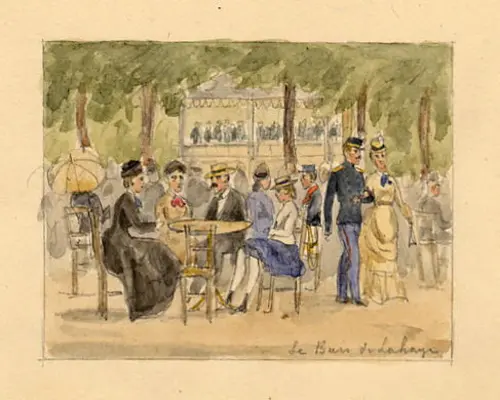 Le Bois de Lahaye